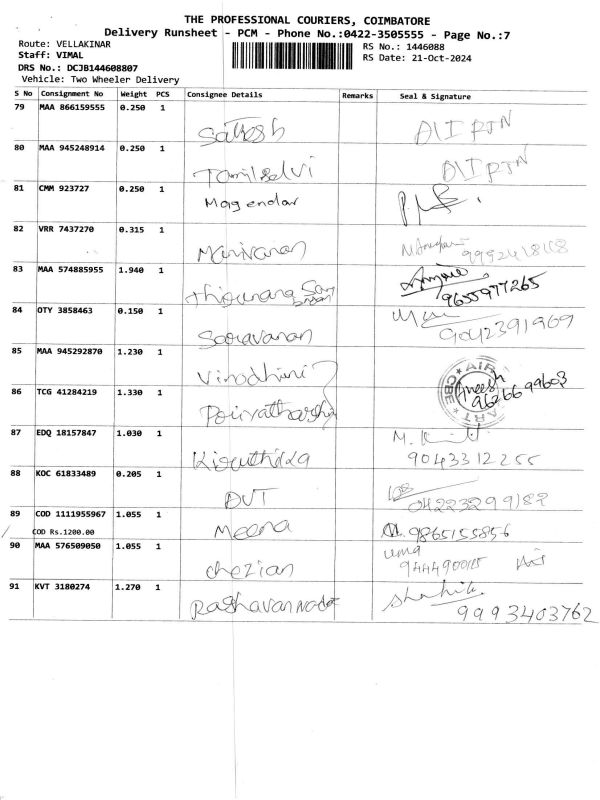 THE PROFESSIONAL COURIERS, COIMBATORE
Delivery Runsheet - PCM - Phone No.:0422-3505555 - Page No.:7
Route: VELLAKINAR
RS No.: 1446088
Staff: VIMAL
RS Date: 21-Oct-2024
DRS No.: DCJB144608807
Vehicle: Two Wheeler Delivery
S No Consignment No Weight PCS Consignee Details Remarks Seal & Signature
79 MAA 866159555 0.250 1
80 MAA 945248914 0.250 1
Tamilselvi
81 CMM 923727 0.250 1 Magendar
82 VRR 7437270 0.315 1
Manivanan
83 MAA 574885955 1.940 1
9655977265
84 OTY 3858463 0.150 1
Saravanan 9042391969
85 MAA 945292870 1.230 1
Vinodhini AIR CBE ART Aneesh
9626699603
86 TCG 41284219 1.330 1
87 EDQ 18157847 1.030 1
9043312255
88 KOC 61833489 0.205 1
DVT 04223299182
89 COD 1111955967 1.055 1
COD Rs.1200.00 Meena 9865155856
90 MAA 576509050 1.055 1 uma
chezian
91 KVT 3180274 1.270 1
9993403762